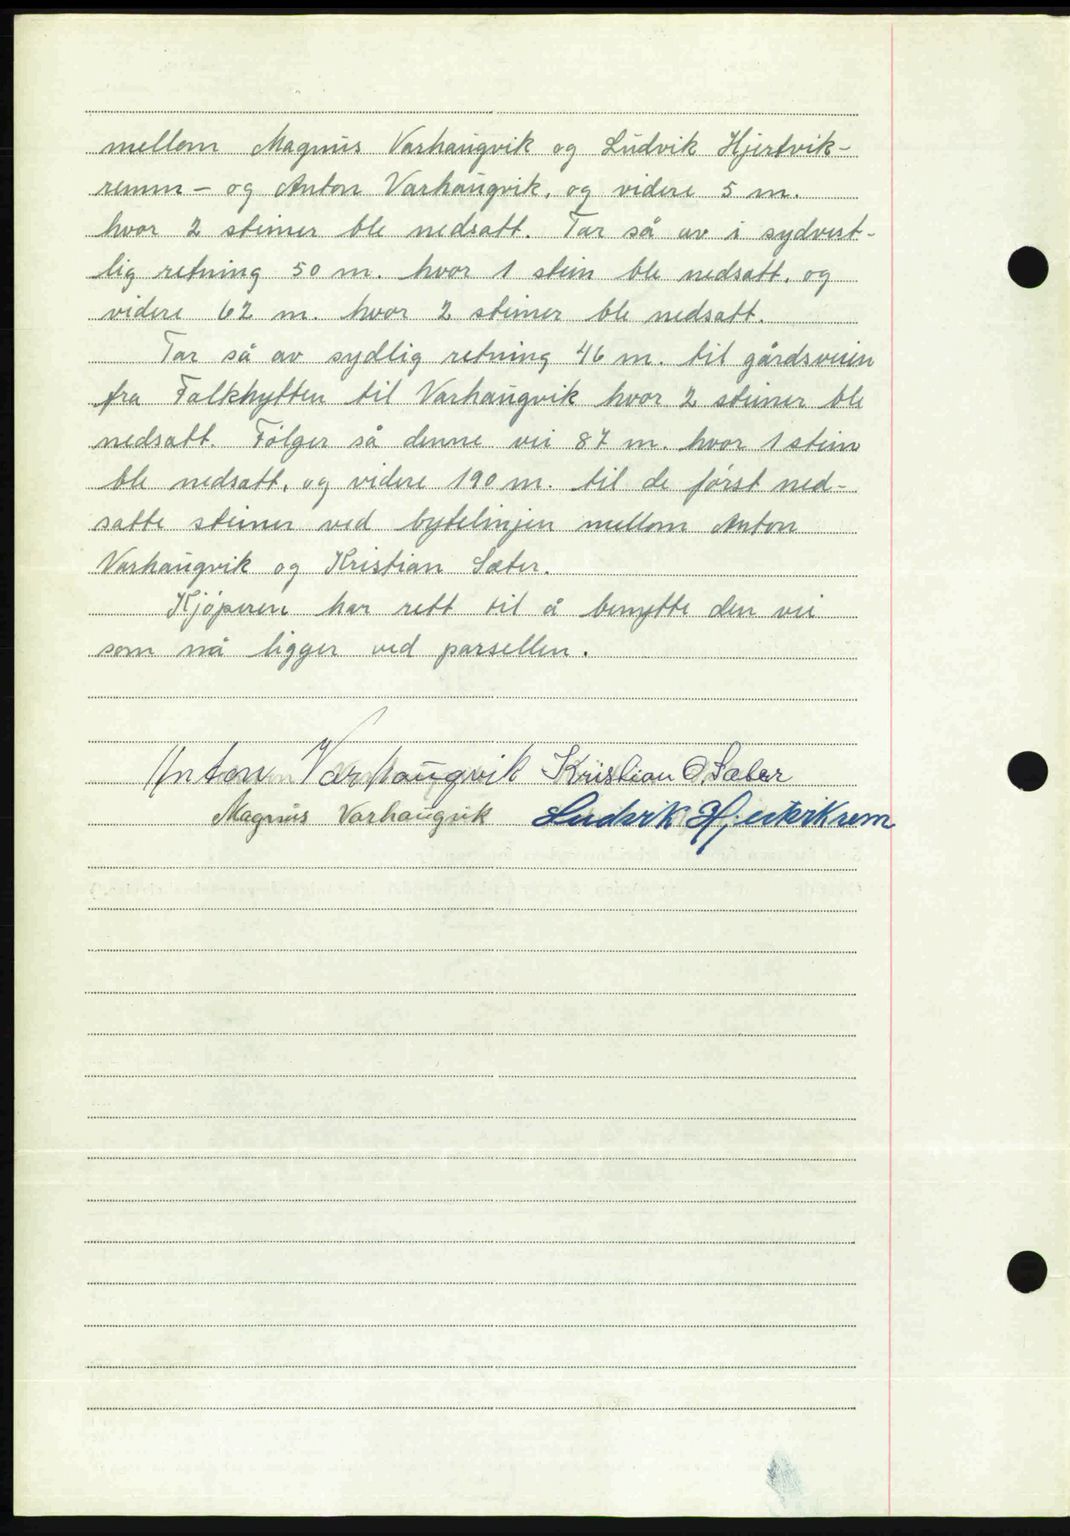 mellom Magnus Varhaugvik og Ludvik Hjertvik-
remm - og Anton Varhaugvik, og videre 5 m.
hvor 2 steiner ble nedsatt. Tar så av i sydvest-
lig retning 50 m. hvor 1 stein ble nedsatt, og
videre 62 m. hvor 2 steiner ble nedsatt.
Tar så av sydlig retning 46 m. til gårdsveien
fra Falkhytten til Varhaugvik hvor 2 steiner ble
nedsatt. Følger så denne vei 87 m. hvor 1 stein
ble nedsatt, og videre 190 m. til de først ned-
satte steiner ved bytelinjen mellom Anton
Varhaugvik og Kristian Sæter.
Kjøperen har rett til å benytte den vei
som nå ligger ved parsellen.
Anton Varhaugvik Kristian O. Sæter
Magnus Varhaugvik Ludvik Hjertvikrem